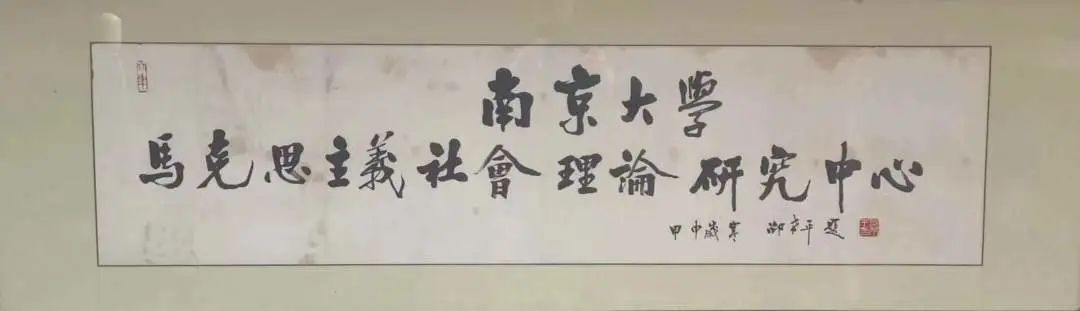 南京大學
馬克思主義社會理論研究中心
甲申歲寒 邵京平題